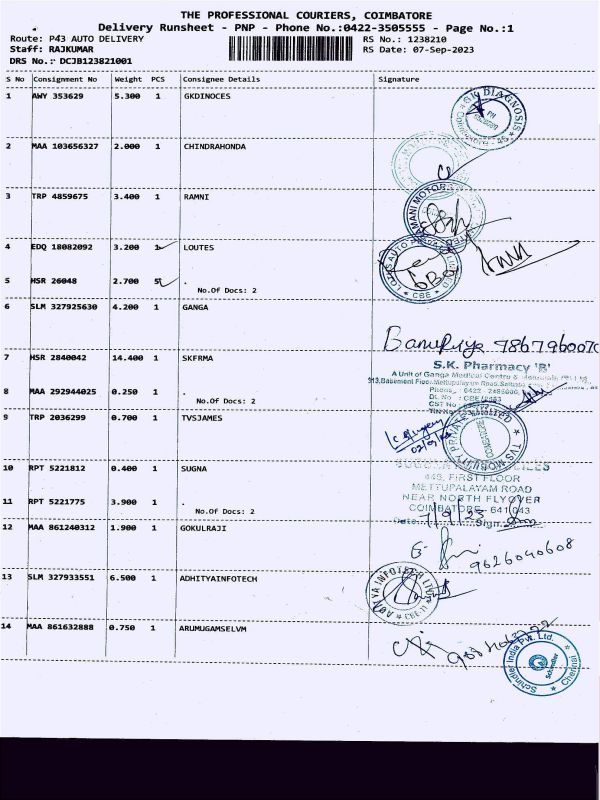 THE PROFESSIONAL COURIERS, COIMBATORE
Delivery Runsheet - PNP - Phone No.:0422-3505555 - Page No.:1
Route: P43 AUTO DELIVERY RS No.: 1238210
Staff: RAJKUMAR RS Date: 07-Sep-2023
DRS No.: DCJB123821001
S No Consignment No Weight PCS Consignee Details Signature
1 AWY 353629 5.300 1 GKDINOCES
GK DIAGNOSIS
2 MAA 103656327 2.000 1 CHINDRAHONDA
3 TRP 4859675 3.400 1 RAMNI
4 EDQ 18082092 3.200 1 LOUTES
5 HSR 26048 2.700 5 .
No.Of Docs: 2
6 SLM 327925630 4.200 1 GANGA
Banupriya
7 HSR 2840042 14.400 1 SKFRMA
S.K. Pharmacy 'B'
A Unit of Ganga Medical Centre &
313, Basement Floor, Mettupalayam Road,
8 MAA 292944025 0.250 1 .
No.Of Docs: 2
9 TRP 2036299 0.700 1 TVSJAMES
TVS MOBILITY PRIVATE
10 RPT 5221812 0.400 1 SUGNA
449, FIRST FLOOR
METTUPALAYAM ROAD
NEAR NORTH FLYOVER
COIMBATORE- 641 043
11 RPT 5221775 3.900 1 .
No.Of Docs: 2
Date 7/9/23 Sign
12 MAA 861240312 1.900 1 GOKULRAJI
9626040608
13 SLM 327933551 6.500 1 ADHITYAINFOTECH
14 MAA 861632888 0.750 1 ARUMUGAMSELVM
Schindler India Pvt. Ltd.
Schindler
Chennai